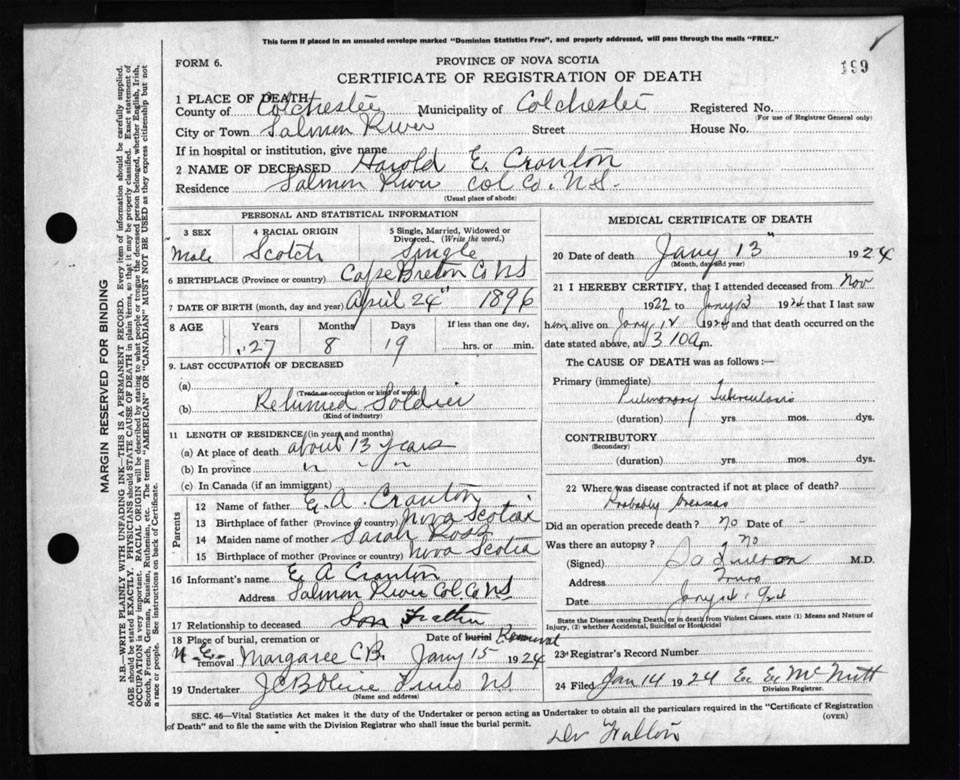 This form if placed in an unsealed envelope marked "Dominion Statistics Free", and properly addressed, will pass through the mails "FREE."
FORM 6.
PROVINCE OF NOVA SCOTIA
199
CERTIFICATE OF REGISTRATION OF DEATH
1 PLACE OF DEATH
County of Colchester Municipality of Colchester Registered No.
(For use of Registrar General only)
City or Town Salmon River Street House No.
If in hospital or institution, give name
2 NAME OF DECEASED Harold E. Cranton
Residence Salmon River Col Co. N.S.
(Usual place of abode)
PERSONAL AND STATISTICAL INFORMATION
3 SEX 4 RACIAL ORIGIN 5 Single, Married, Widowed or Divorced. (Write the word.)
Male Scotch Single
6 BIRTHPLACE (Province or country) Cape Breton Co NS
7 DATE OF BIRTH (month, day and year) April 24" 1896
8 AGE Years Months Days If less than one day,
27 8 19 hrs. or min.
9. LAST OCCUPATION OF DECEASED
(a)
(Trade or occupation or kind of work)
(b) Returned Soldier
(Kind of industry)
11 LENGTH OF RESIDENCE (in years and months)
(a) At place of death about 13 years
(b) In province " " "
(c) In Canada (if an immigrant)
Parents
12 Name of father E. A. Cranton
13 Birthplace of father (Province or country) Nova Scotia
14 Maiden name of mother Sarah Ross
15 Birthplace of mother (Province or country) Nova Scotia
16 Informant's name E A Cranton
Address Salmon River Col. Co NS
17 Relationship to deceased Son Father
18 Place of burial, cremation or Date of burial Removal
removal Margaree C.B. Jany 15 1924
19 Undertaker Truro NS
(Name and address)
MEDICAL CERTIFICATE OF DEATH
20 Date of death Jany 13" 1924
(Month, day and year)
21 I HEREBY CERTIFY, that I attended deceased from Nov
1922 to Jany 13 1924 that I last saw
him alive on Jany 12 1924 and that death occurred on
date stated above, at 3 10 a m.
The CAUSE OF DEATH was as follows:—
Primary (immediate)
Pulmonary Tuberculosis
(duration) yrs mos. dys.
CONTRIBUTORY
(Secondary)
(duration) yrs. mos. dys.
22 Where was disease contracted if not at place of death?
Probably Overseas
Did an operation precede death? no Date of -
Was there an autopsy? no
(Signed) M.D.
Address Truro
Date Jany 14. 1924
State the Disease causing Death, or in death from Violent Causes, state (1) Means and Nature of
Injury, (2) whether Accidental, Suicidal or Homicidal
23 Registrar's Record Number
24 Filed Jan 14 1924 E. E. McNutt
Division Registrar.
SEC. 46—Vital Statistics Act makes it the duty of the Undertaker or person acting as Undertaker to obtain all the particulars required in the "Certificate of Registration
of Death" and to file the same with the Division Registrar who shall issue the burial permit.
(OVER)
MARGIN RESERVED FOR BINDING
N.B.—WRITE PLAINLY WITH UNFADING INK—THIS IS A PERMANENT RECORD. Every item of information should be carefully supplied.
AGE should be stated EXACTLY. PHYSICIANS should STATE CAUSE OF DEATH in plain terms, so that it may be properly classified. Exact statement of
OCCUPATION is very important. RACIAL ORIGIN will be described by stating to what people or tongue the deceased person belonged, whether English, Irish,
Scotch, French, German, Russian, Ruthenian, etc. The terms "AMERICAN" OR "CANADIAN" MUST NOT BE USED as they express citizenship but not
a race or people. See instructions on back of Certificate.